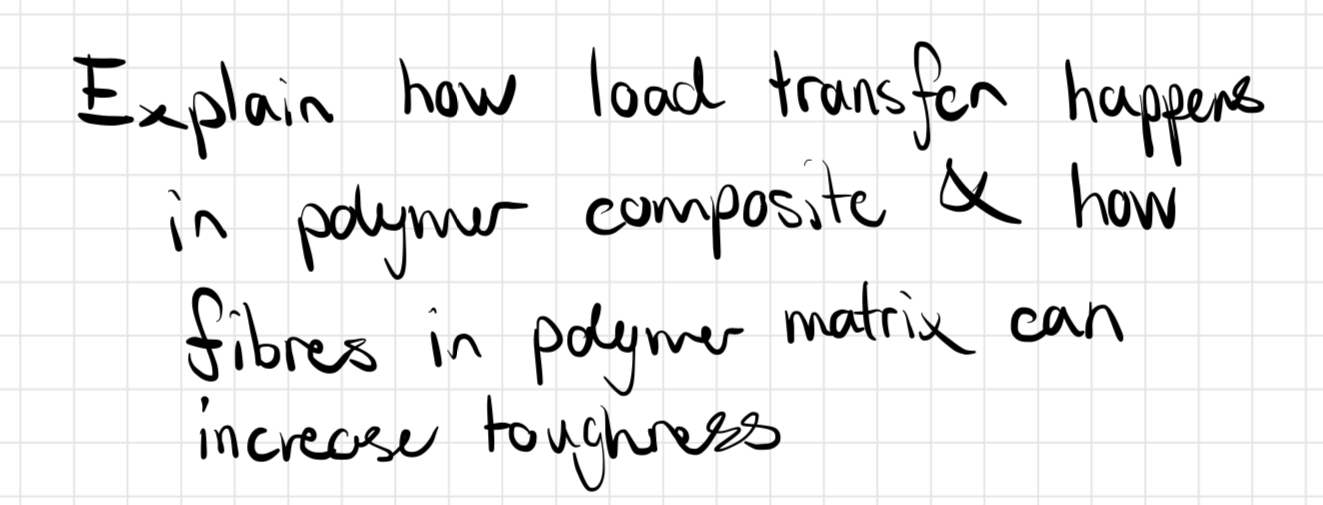 Explain how load transfer happens
in polymer composite & how
fibres in polymer matrix can
increase toughness